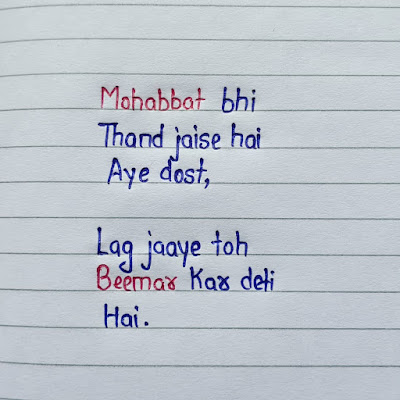 Mohabbat bhi
Thand jaise hai
Aye dost,
Lag jaaye toh
Beemar Kar deti
Hai.